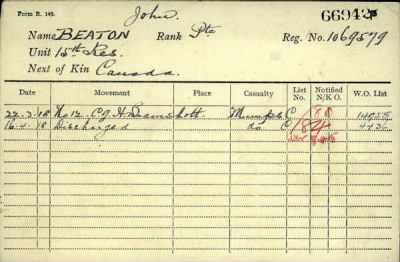 Form R. 149.
John.
66942
Name BEATON Rank Pte Reg. No. 1069579
Unit 15th Res.
Next of Kin Canada.
Date Movement Place Casualty List No. Notified N/K O. W.O. List
22-3-18 No 12. C.G.H. Bramshott. Mumps. C
16-4-18 Discharged do C 184